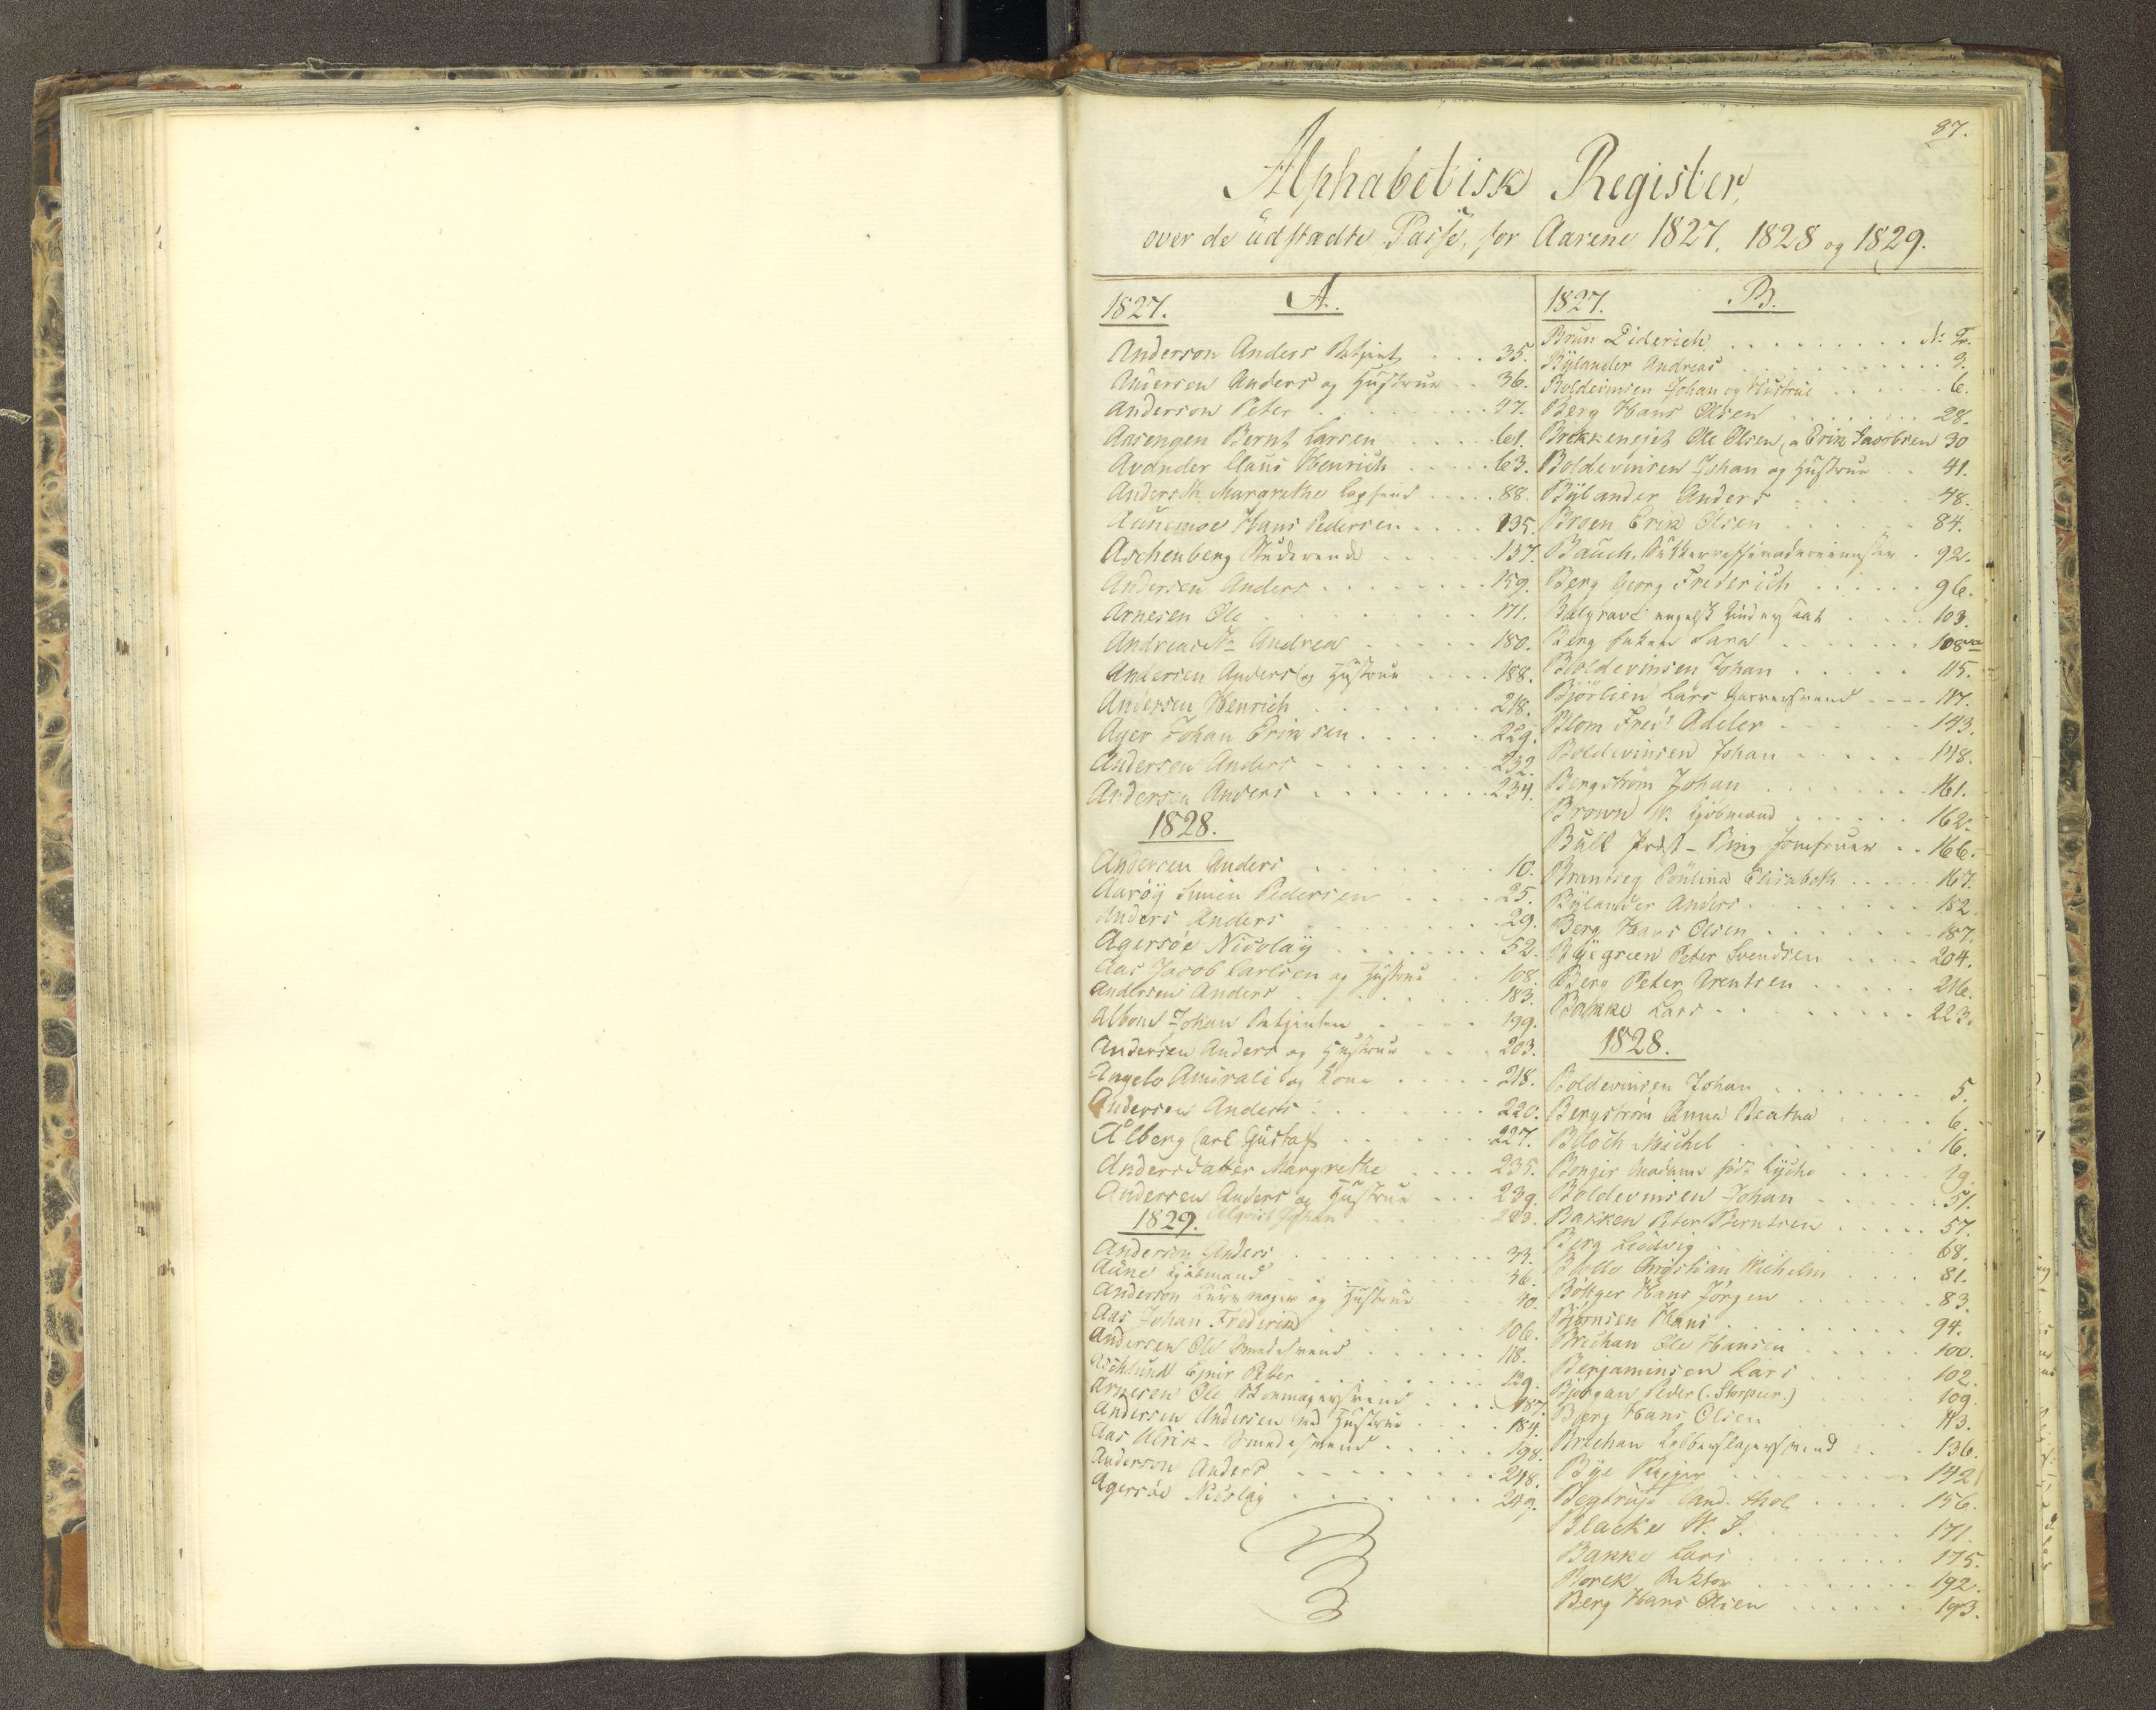 87.
Alphabetisk Register,
over de udstædte Passe, for Aarene 1827, 1828 og 1829.
1827. A.
Anderson Anders 35.
Andersen Anders og Hustrue 36.
Anderson Peter 47.
Aasengen Bernt Larsen 61.
Avander Claus Henrich 63.
Anders Margrethe 88.
Aunemoe Hans Pedersen 135.
Aschenberg Studerende 137.
Andersen Anders 159.
Arnesen Ole 171.
Andreas Andrea 180.
Andersen Anders og Hustrue 188.
Andersen Henrich 218.
Ager Johan Eriksen 229.
Andersen Anders 232.
Andersen Anders 234.
1828.
Andersen Anders 10.
Aaröy Simen Pedersen 25.
Anders Anders 29.
Agersöe Nicolay 52.
Aas Jacob Carlsen og Hustrue 108.
Andersen Anders 183.
Albom Johan 199.
Andersen Anders og Hustrue 203.
Angelo Amirali og Kone 218.
Andersen Anders 220.
Ålberg Carl Gustaf 227.
Andersdatter Margrethe 235.
Andersen Anders og Hustrue 239.
1829. Alqvist Johan 243.
Anderson Anders 33.
Aune Kjöbmand 36.
Anderson og Hustrue 40.
Aas Johan Frederik 106.
Andersen Ole Smedesvend 118.
Aschlund Ejnir Peter 129.
Arnesen Ole 187.
Andersen Andersen med Hustrue 184.
Aas Ulrik Smedesvend 198.
Anderson Anders 248.
Agersöe Nicolay 249.
1827. B.
Brun Diderich No 2.
Bylander Andreas 3.
Boldevinsen Johan og Hustrue 6.
Berg Hans Olsen 28.
Brekkeneset Ole Olsen, og Erik Jacobsen 30
Boldevinsen Johan og Hustrue 41.
Bylander Anders 48.
Broen Erik Olsen 84.
Bauch, 92.
Berg Georg Frederich 96.
Balgrave engelsk 103.
Berg Sara 108
Boldevinsen Johan 115.
Björlien Lars Garversvend 117.
Blom Fred: Adeler 143.
Boldevinsen Johan 148.
Bergström Johan 161.
Brown W. Kjöbmand 162.
Bull Præst - Bing Jomfruer 166.
Brantseg Poulina Elisabeth 167.
Bylander Anders 182.
Berg Hans Olsen 187.
Byegreen Peter Svendsen 204.
Berg Peter Arentsen 216.
Bakke Lars 223.
1828.
Boldevinsen Johan 5.
Bergström Anna Beatha 6.
Bloch Michel 16.
Madame född 19.
Boldevinsen Johan 51.
Bakken Peter Berntsen 57.
Berg Ludvig 68.
Christian Wilhelm 81.
Böttger Hans Jörgen 83.
Björnsen Hans 94.
Brechan Ole Hansen 100.
Benjaminsen Lars 102.
Björgan Peder (Storpeer.) 109.
Berg Hans Olsen 113.
Brechan Kobberslagersvend 136.
Bye 142.
Begtrup Cand. theol. 156.
Blacke W. J. 171.
Bakke Lars 175.
Borck Rektor 192.
Berg Hans Olsen 193.